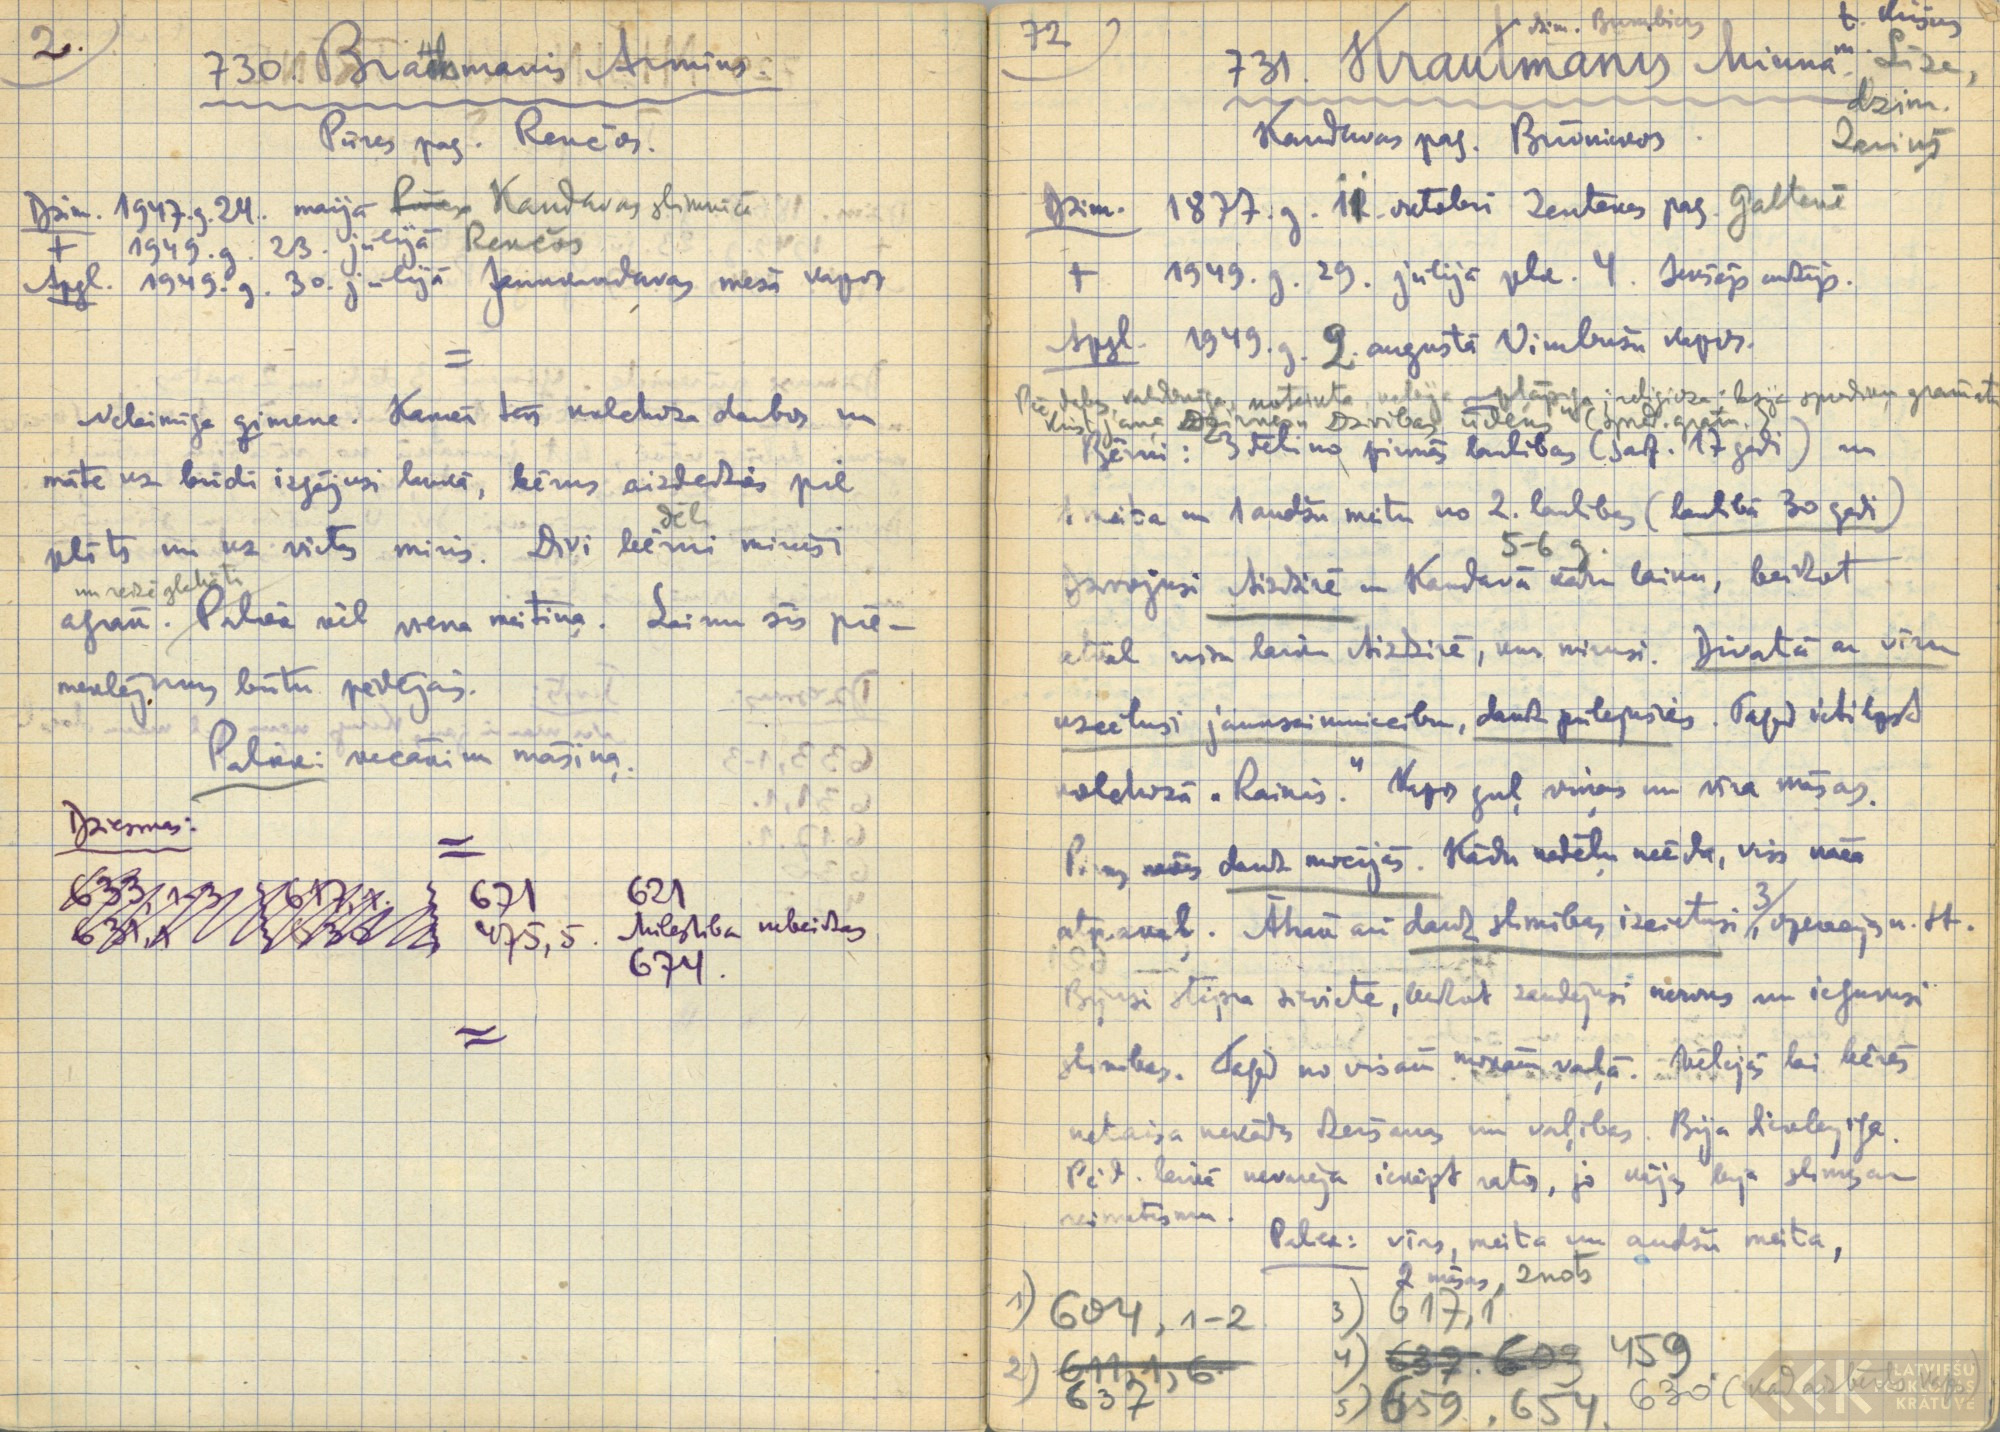 2.
730. Bratsmanis Armīns.
Pūres pag. Renčos.
Dzim. 1947. g. 24. maijā Kandavas slimnīcā
+ 1949. g. 23. jūlijā Renčos
Apgl. 1949. g. 30. jūlijā Jaunkandavas meža kapos
=
Nelaimīga ģimene. Kamēr tēvs kolchoza darbos un
māte uz brīdi izgājusi laukā, bērns aizdedzies pie
plīts un uz vietas miris. Divi bērni miruši
dēli
agrāk. Paliek vēl viena meitiņa. Laimu šis pie-
meklējums būtu pēdējais.
Paliek: vecākiem māsiņa.
Dziesmas:
=
633, 1-3 617, 1.
671 621
475, 5. Mīlestība nebeidzas
674.
=
72
dzim. Bumbieris
731. Krautmanis Minna
t. Krišus
m. Līze,
dzim.
Zariņš
Kandavas pag. Brūniekos
Dzim. 1877. g. 11. oktobrī Zentenes pag. Galtenē
+ 1949. g. 29. jūlijā plx. 4. Iekšējs audzējs.
Apgl. 1949. g. 2. augustā Vimbušu kapos.
religioza: lasīja sprediķu grāmatu
Dzirnesu Dzīvības ūdens" (spred. grām.)
Bērni: 3 dēli no pirmās laulības (saŗ. 17 gadi) un
1 meita un 1 audžu meita no 2. laulības (laulībā 30 gadi)
5-6 g.
Dzīvojusi Aizdzirē un Kandavā kādu laiku, beidzot
atkal visu laiku Aizdzirē, kur mirusi. Divatā ar vīru
uzcēlusi jaunsaimniecību, daudz pūlējusies. Tagad ietilpst
kolchozā „Rainis." Kapos guļ viņas un vīra māsas.
Pirms nāves daudz mocījās. Kādu nedēļu neēda, viss nāca
atpakaļ. Ātrāk arī daudz slimības izcietusi, 3 operācijas u. tt.
Bijusi stipra sieviete, beidzot zaudējusi nervus un ieguvusi
slimības. Tagad no visām mokām vaļā. Vēlējās lai bērēs
netaisa nekādas dzeršanas un vaļības. Bija dievbijīga.
Pēd. laikā nevarēja iekāpt ratos, jo kājas bija slimas ar
reimatismu.
Paliek: vīrs, meita un audžu meita,
2 māsas, znots
1) 604, 1-2
3) 617, 1
2) 611, 1, 6.
637
4) 637. 609 459
5) 659, 654. 630 (
LATVIEŠU
FOLKLORAS
KRĀTUVE